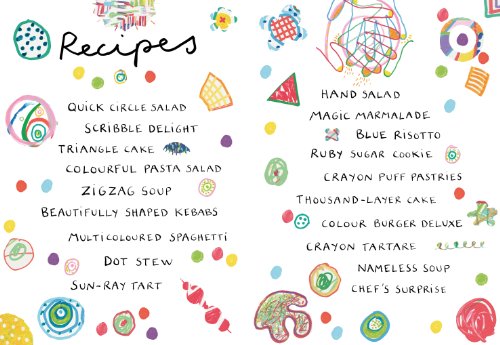 Recipes
QUICK CIRCLE SALAD
SCRIBBLE DELIGHT
TRIANGLE CAKE
COLOURFUL PASTA SALAD
ZIGZAG SOUP
BEAUTIFULLY SHAPED KEBABS
MULTICOLOURED SPAGHETTI
DOT STEW
SUN-RAY TART
HAND SALAD
MAGIC MARMALADE
BLUE RISOTTO
RUBY SUGAR COOKIE
CRAYON PUFF PASTRIES
THOUSAND-LAYER CAKE
COLOUR BURGER DELUXE
CRAYON TARTARE
NAMELESS SOUP
CHEF'S SURPRISE